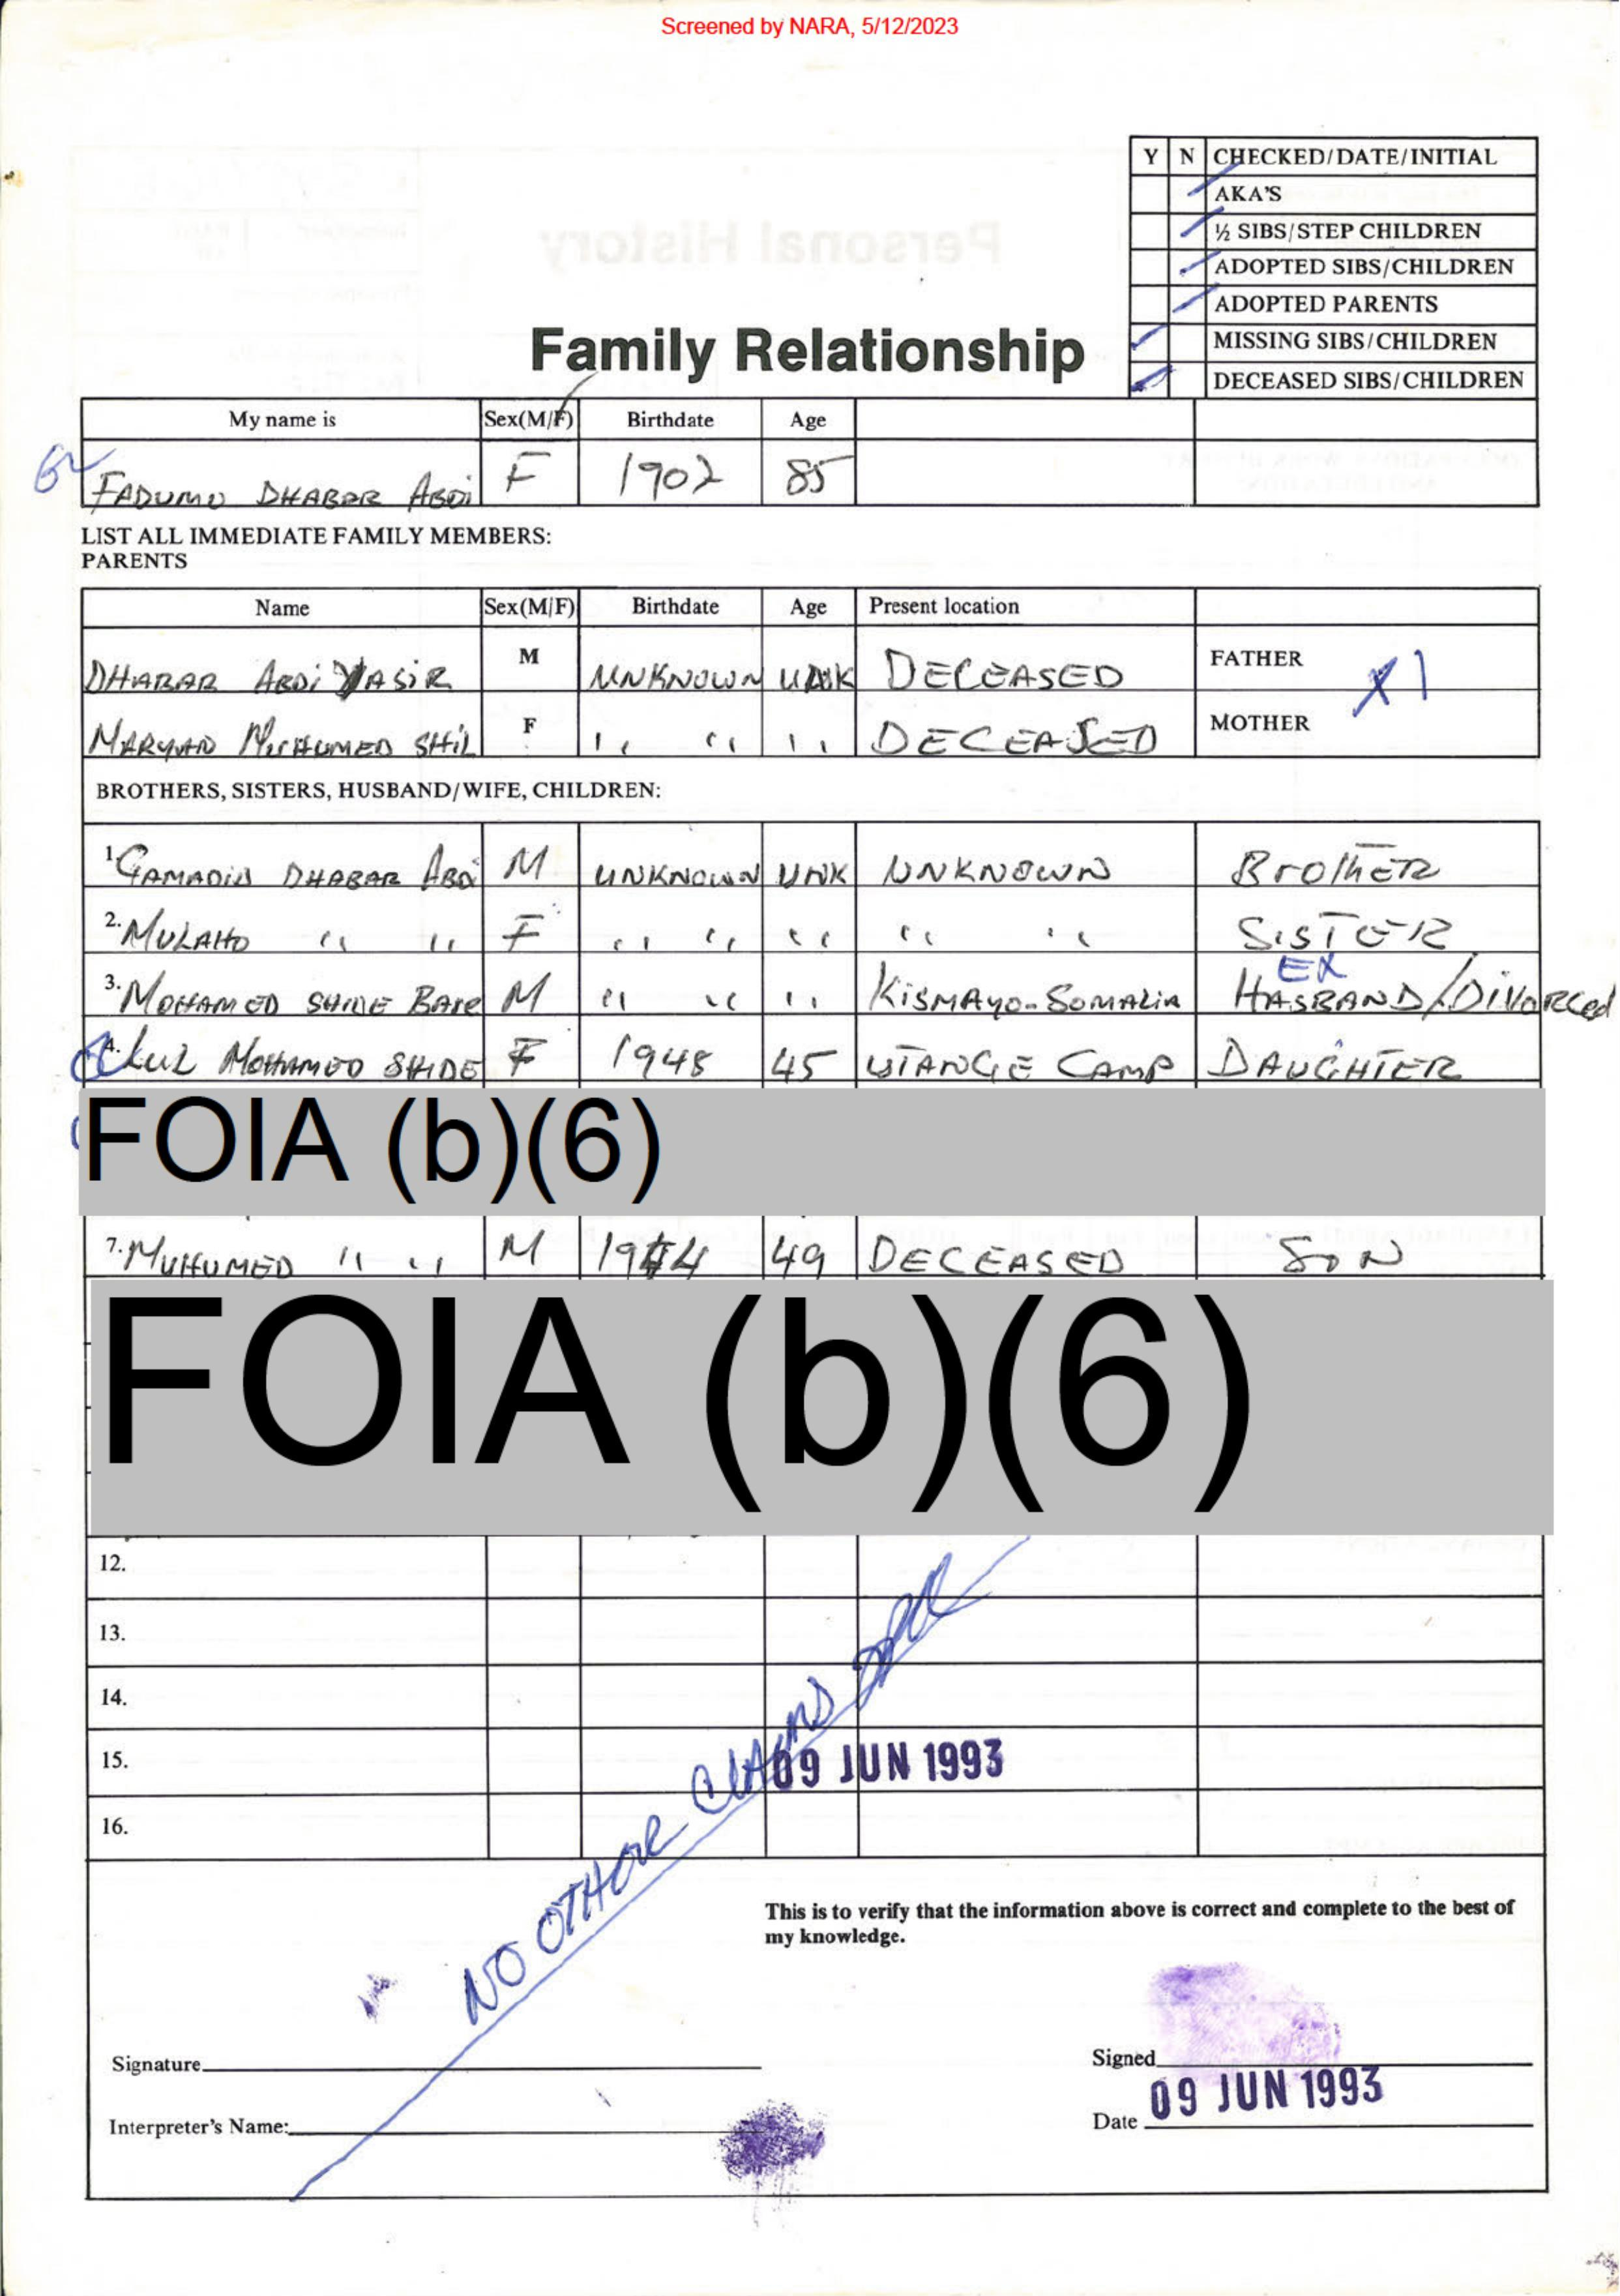 Screened by NARA, 5/12/2023
Y N CHECKED/DATE/INITIAL
AKA'S
½ SIBS/STEP CHILDREN
ADOPTED SIBS/CHILDREN
ADOPTED PARENTS
MISSING SIBS/CHILDREN
DECEASED SIBS/CHILDREN
Family Relationship
My name is Sex(M/F) Birthdate Age
FADUMO DHABAR ABDI F 1902 85
LIST ALL IMMEDIATE FAMILY MEMBERS:
PARENTS
Name Sex(M/F) Birthdate Age Present location
DHABAR ABDI YASIR M UNKNOWN UNK DECEASED FATHER X1
MUHUMED SHIL F " " " DECEASED MOTHER
BROTHERS, SISTERS, HUSBAND/WIFE, CHILDREN:
1. DHABAR ABDI M UNKNOWN UNK UNKNOWN BROTHER
2. MULAHO " " F " " " " " SISTER
EX
3. MOHAMED SHIDE BARE M " " " KISMAYO-SOMALIA HASBAND/DIVORCED
4. LUL MOHAMED SHIDE F 1948 45 UTANGE CAMP DAUGHTER
FOIA (b)(6)
7. MUHUMED " " M 1944 49 DECEASED SON
FOIA (b)(6)
12.
13.
14.
15. 09 JUN 1993
16.
NO OTHER CLAIMS
This is to verify that the information above is correct and complete to the best of
my knowledge.
Signature
Signed
09 JUN 1993
Interpreter's Name:
Date